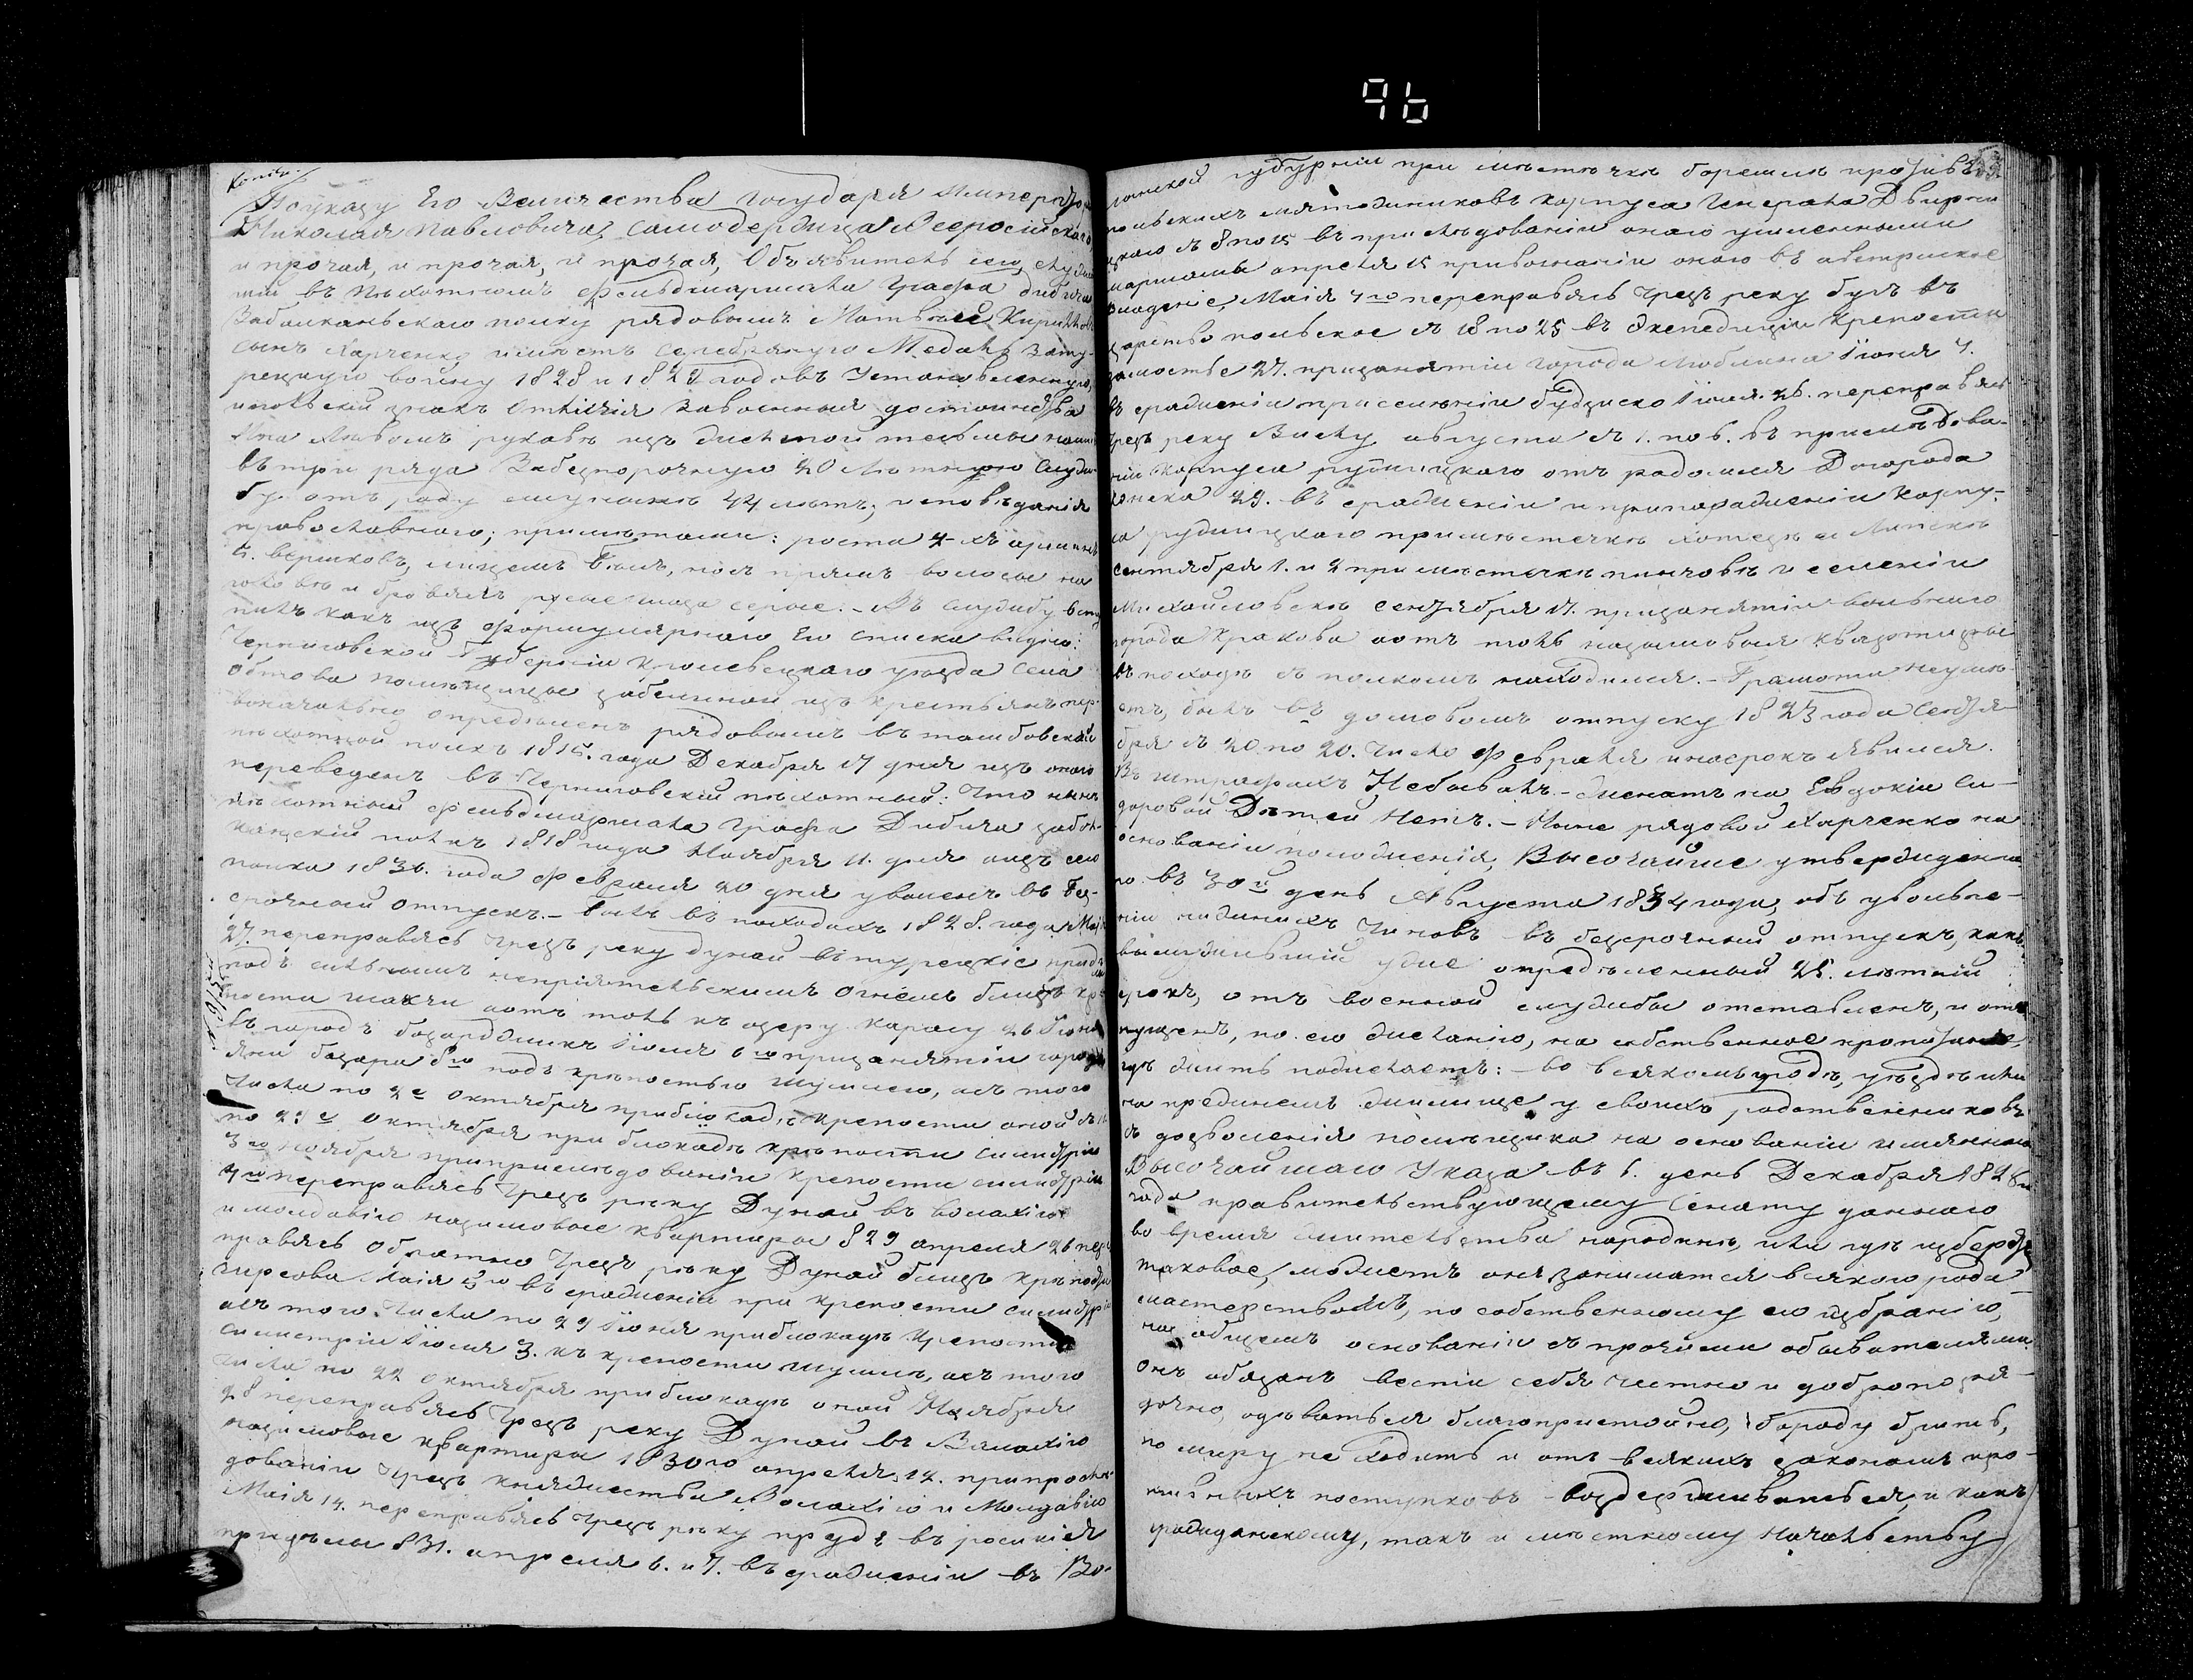 96
Копія.
По указу Его Величества Государя Императора
Николая Павловича Самодержца Всероссійскаго
и прочая, и прочая, и прочая, Объявитель сего, служи
въ Пѣхотномъ Фельдмаршала Графа Дибича
Забалканьскаго полку рядовымъ Матвѣй Кирилловъ
сынъ Харченко имѣетъ серебряную Медаль за ту-
рецкую войну 1828 и 1829 годовъ Установленную,
польскій знакъ Отличія за военныя достоинства
и на лѣвомъ рукавѣ изъ желтой тесьмы наши
въ три ряда За безпорочную 20 лѣтнюю служ-
бу отъ роду ему нынѣ 44 лѣтъ, исповѣданія
православнаго, примѣтами: роста 2-хъ аршинъ
5. вершковъ, лицемъ бѣлъ, носъ прямъ волосы на
головѣ и бровяхъ русые глаза серые. – Въ службу всту
пилъ какъ изъ формулярнаго Его списка видно:
Черниговской Губерніи Кролевецкаго уѣзда села
Обтова помѣщицы Забелиной изъ крестьянъ пер-
воначально опредѣленъ рядовымъ въ тамбовскій
пѣхотный полкъ 1815. года Декабря 17 дня изъ онаго
переведенъ въ Черниговскій пѣхотный: Что нынѣ
пѣхотный фельдмаршала Графа Дибича забал-
канскій полкъ 1818 года Ноября 11. дня аизъ сего
полка 1836. года Февраля 20 дня уволенъ въ без-
срочный отпускъ. – Былъ въ походахъ 1828. года Маія
27. переправясь чрезъ реку дунай въ турецкіе предѣ
подъ сильнымъ непріятельскимъ огнемъ близъ крѣ
пости Исакчи аотъ толь къ озеру Карасу 26 Іюня
въ городѣ базарджикъ Іюля 6го призанятіи города
яни базара 8го подъ крѣпостью Шумлею, асъ того
числа по 2е Октября приблокадѣ крепости оной съ
по 27е Октября при блокадѣ крѣпости силистріи
3го Ноября приприслѣдованіи крепости силистріи
4го переправясь чрезъ рѣку Дунай въ валахію
и молдавію назимовые квартиры 829 апреля 26 пере
правясь Обратно чрезъ рѣку Дунай близъ крѣпости
гирсова. Маія 5го въ сраженіи при крепости силистріи
асъ того числа по 29 Іюня приблокадѣ крепости
силистріи Іюля 3. къ крепости шумлѣ, асъ того
числа по 22 октября приблокадѣ оной Ноября
28 переправясь чрезъ реку Дунай въ Валахію
назимовые квартиры 1830го апреля 14. при прослѣ-
дованіи чрезъ княжества Валахію и Молдавію
Маія 14. переправясь чрезъ рѣку прудъ въ росийскія
предѣлы 831. апреля 6. и 7. въ сраженіи въ Во-
лынской губерніи при мѣстечкѣ боремлѣ противъ
польскихъ мятежниковъ корпуса Генерала Дверни
цкаго съ 8 по 15 въ приследованіи онаго усиленными
маршами апреля 15 привогнаніи онаго въ австрийское
владеніе, Маія 4го переправясь чрезъ реку бугъ въ
царство польское съ 18 по 25 въ Экспедиціи крепости
замостье 27. призанятіи города Люблина Іюня 4.
въ сраженіи при селѣніи будзиско Іюля. 26. переправясь
чрезъ реку Вислу августа съ 1. по 6. въ приследова-
ніи корпуса ружицкаго отъ радомля до города
29. въ сраженіи и припораженіи корпу-
са рудницкаго при мѣстечкѣ хотецъ и Липскѣ
сентября 1. и 2 при мѣстечкѣ пинчовѣ и селеніи
Михайловскѣ сентября 17. призанятіи вольнаго
города Кракова аотъ толь назимовыя квартиры
въ походѣ съ полкомъ находился. – Грамоти неумѣ-
етъ, былъ въ домовомъ отпуску 1823 года Сентя-
бря съ 20 по 20. число Февраля инасрокъ явился.
Въ штрафахъ Небывалъ. – женатъ на Евдокіи Си-
доровой Дѣтей Нетъ. – Ныне рядовой Харченко на
основаніи положенія, Высочайше утвержденна-
го въ 30й день Августа 1834 года, объ увольне-
ніи нижнихъ чиновъ въ безсрочный отпускъ, какъ
выслужившій уже опредѣленный 25. лѣтній
срокъ, отъ военной службы отставленъ, и отъ
пущенъ, по его желанію, на собственное пропитаніе,
гдѣ жить пожелаетъ: – во всякомъ городѣ, уѣздѣ или
на прежнемъ жилище у своихъ родственниковъ
съ дозволенія помѣщика на основаніи имяннаго
Высочайшаго Указа въ 6. день Декабря 1826
года правительствующему Сенату даннаго
во время жительства народинѣ, или гдѣ изберетъ
таковое, можетъ онъ заниматся всякого рода
мастерствомъ, по собственному его избранію,
на общемъ основаніи съ прочими обывателями
Онъ обязанъ вести себя честно и добропоря-
дочно, одѣваться благопристойно, бороду брить,
по миру не ходить и отъ всякихъ законамъ про-
тивныхъ поступковъ воздерживаться, и какъ
гражданскому, такъ и мѣстному Начальству